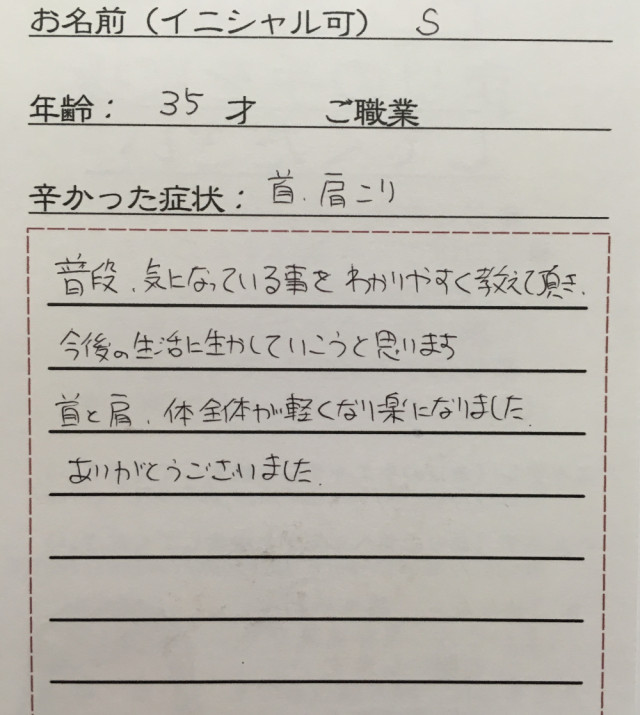 お名前（イニシャル可） S
年齢： 35 才 ご職業
辛かった症状： 首、肩こり
普段、気になっている事を わかりやすく教えて頂き、
今後の生活に生かしていこうと思います
首と肩、体全体が軽くなり楽になりました。
ありがとうございました。